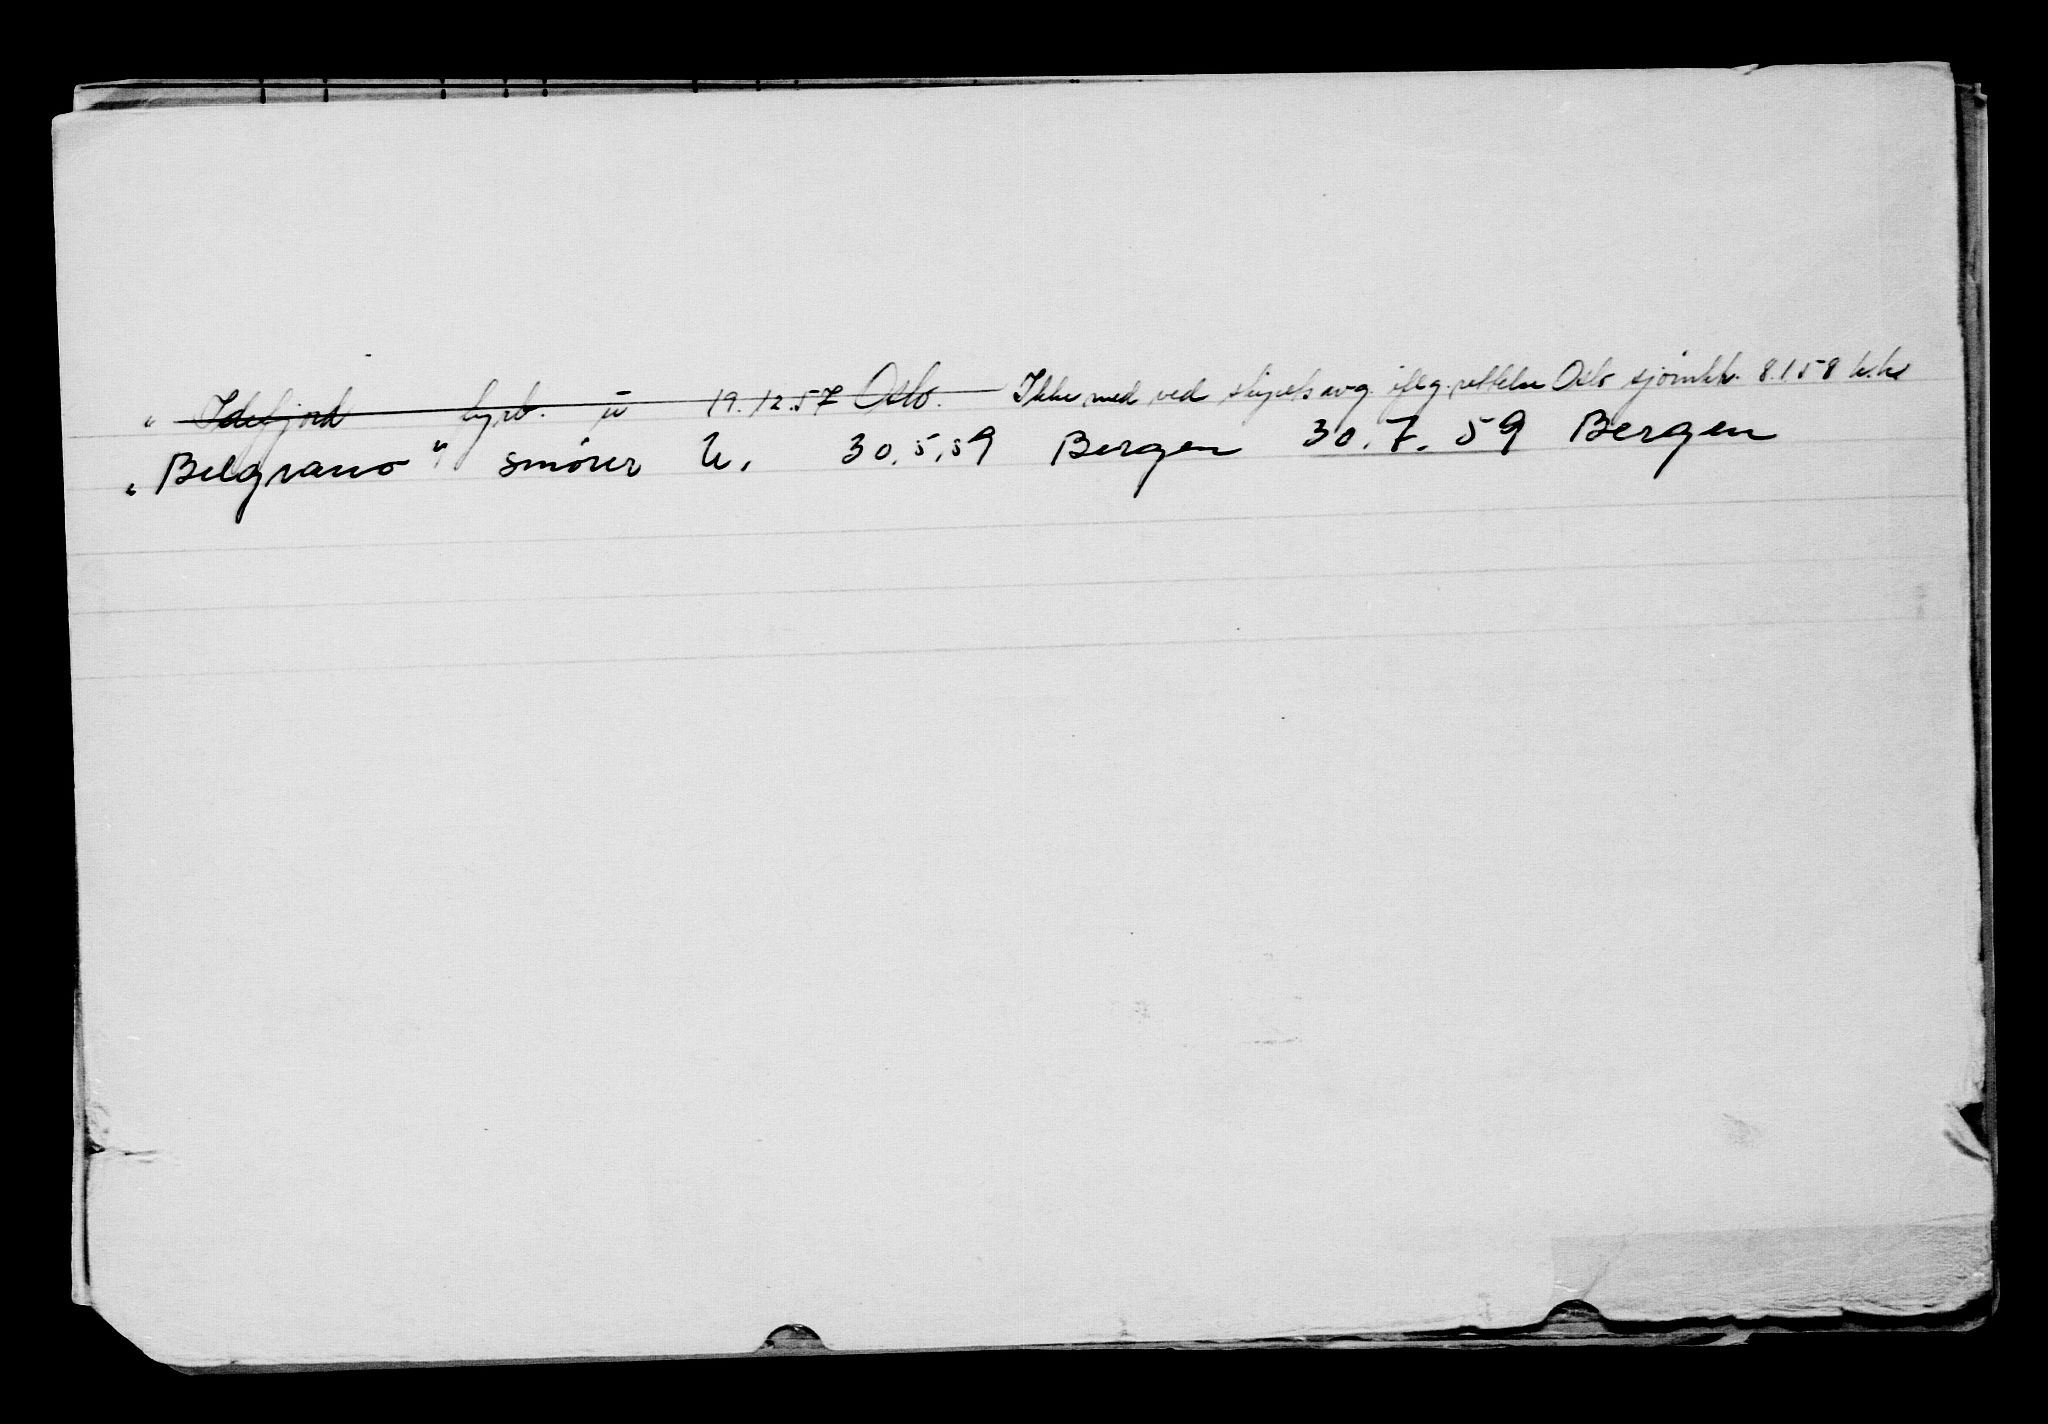 " Idefjord fyrb. u 19.12.57 Oslo. Ikke med ved skipets avg. iflg. rettelse Oslo sjömkk. 8.1.58
" Belgrano " smører U. 30.5.59 Bergen 30.7.59 Bergen